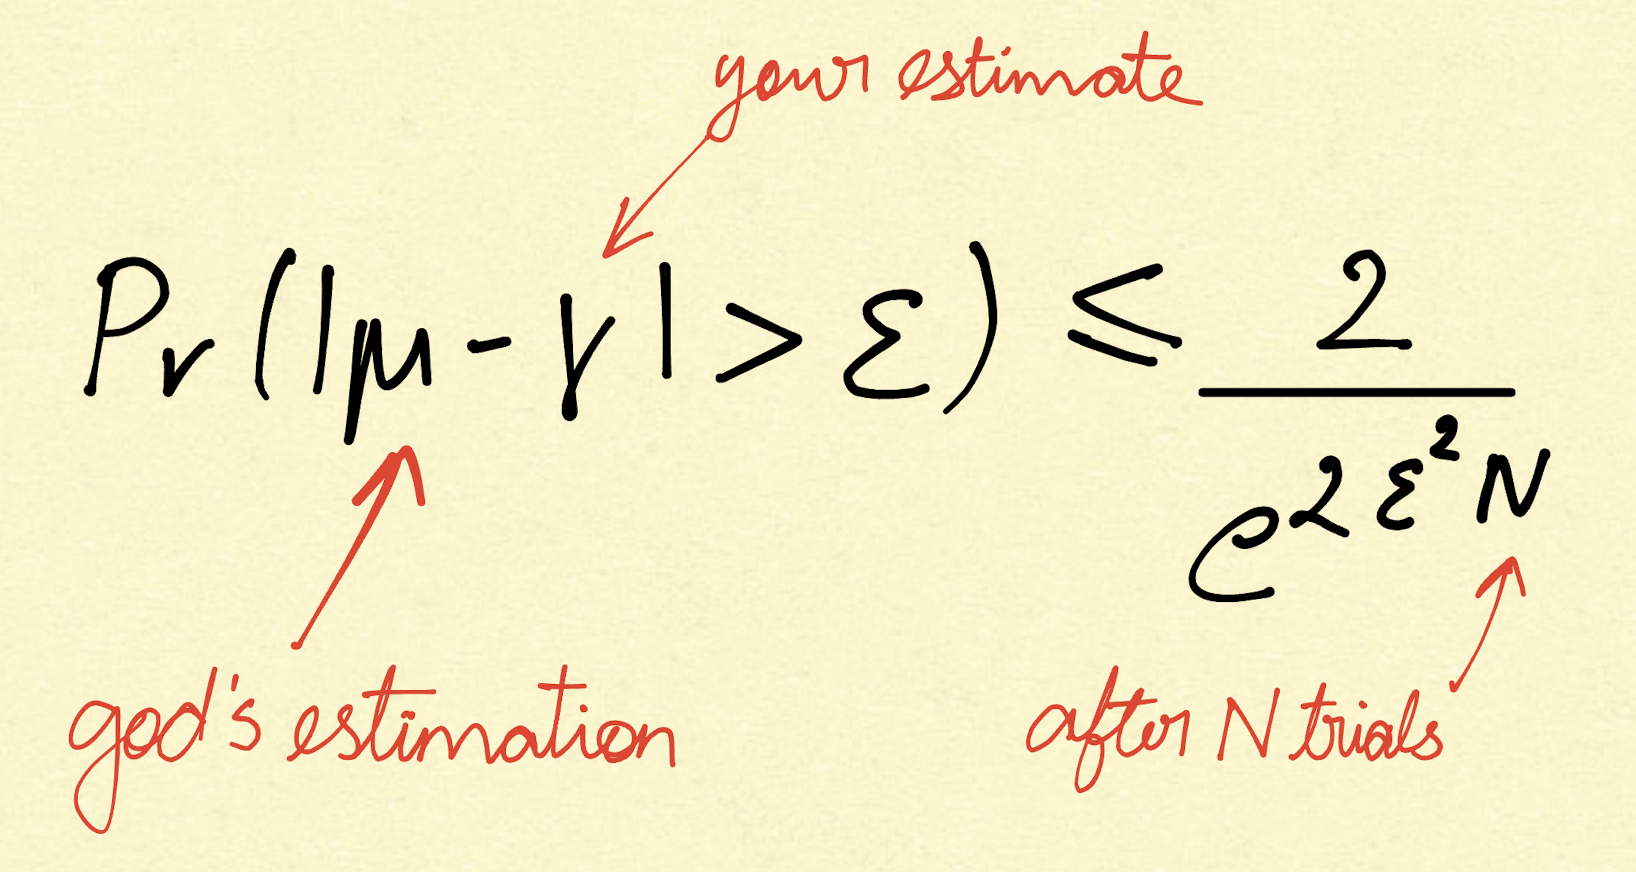 your estimate
Pr(|μ - γ| > ε) ≤ 2 / e^{2ε²N}
god's estimation
after N trials